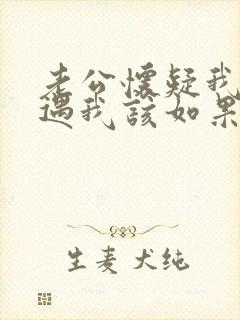 老公懷疑我
遇我該如果
生麦犬纯